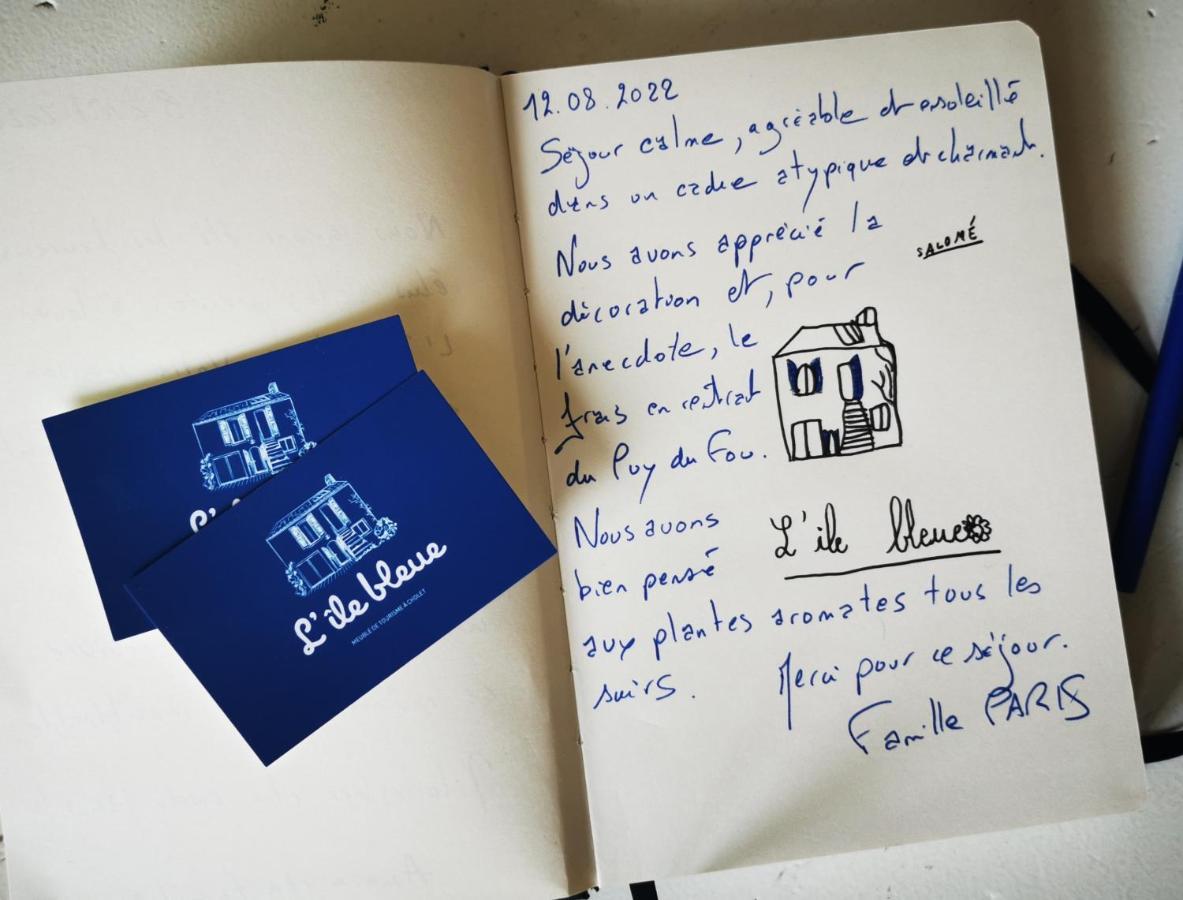 12.08.2022
Séjour calme, agréable et ensoleillé
dans un cadre atypique et charmant.
Nous avons apprécié la
SALOMÉ
décoration et, pour
l'anecdote, le
frais en rentrant
du Puy du Fou.
Nous avons
bien pensé
L'île bleue
aux plantes aromates tous les
soirs.
Merci pour ce séjour.
Famille PARIS
L'île bleue
MEUBLÉ DE TOURISME À CHOLET